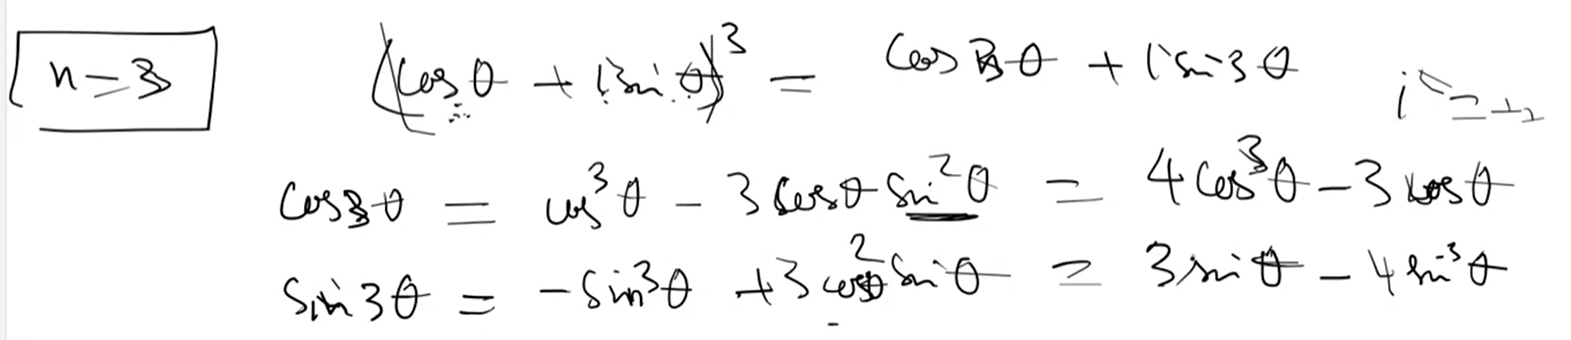 n=3
(cosθ + i sinθ)³ = cos3θ + i sin3θ
i² = -1
cos3θ = cos³θ - 3cosθ sin²θ = 4cos³θ - 3cosθ
sin3θ = -sin³θ + 3cos²θ sinθ = 3sinθ - 4sin³θ